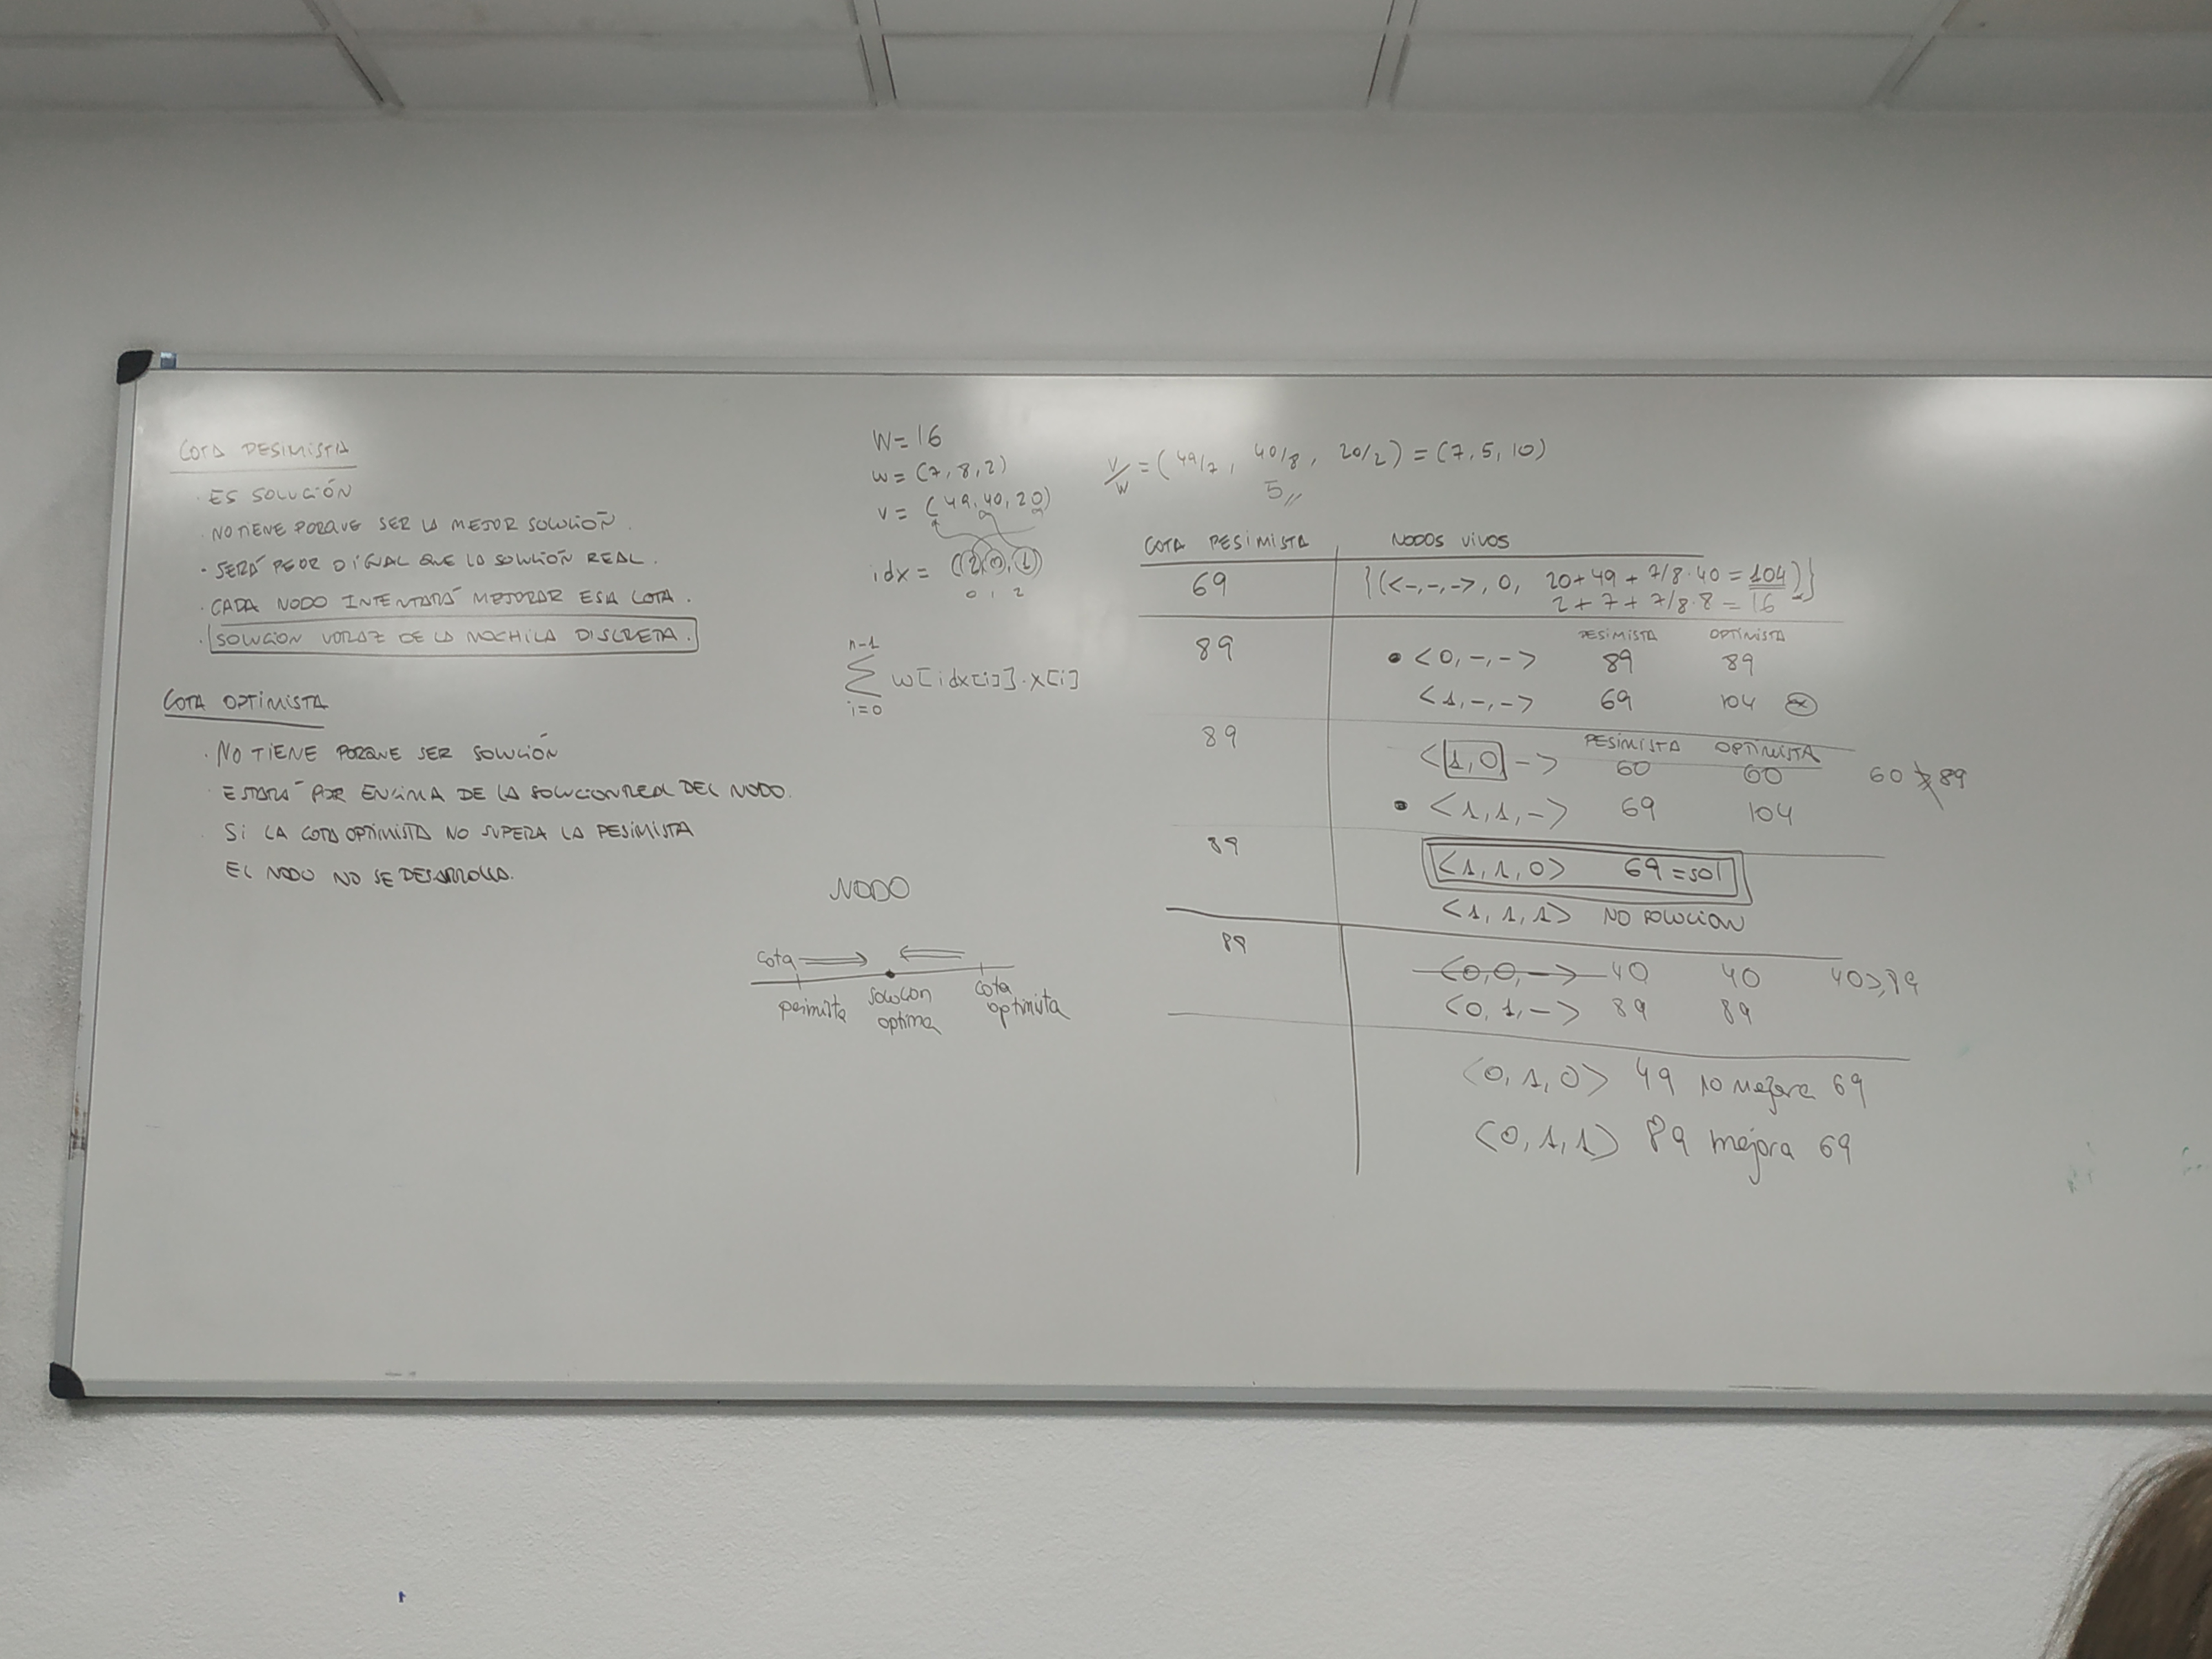 COTA PESIMISTA
· ES SOLUCIÓN
· NO TIENE PORQUE SER LA MEJOR SOLUCIÓN.
· SERÁ PEOR O IGUAL QUE LA SOLUCIÓN REAL.
· CADA NODO INTENTARÁ MEJORAR ESA COTA.
· SOLUCION VORAZ DE LA MOCHILA DISCRETA.
COTA OPTIMISTA
· NO TIENE PORQUE SER SOLUCIÓN
· ESTARÁ POR ENCIMA DE LA SOLUCION REAL DEL NODO.
· SI LA COTA OPTIMISTA NO SUPERA LA PESIMISTA
EL NODO NO SE DESARROLLA.
W=16
w=(7,8,2)
v=(49,40,20)
idx=(2,0,1)
0 1 2
n-1
∑ w[idx[i]]·x[i]
i=0
NODO
cota
pesimista
solucion
optima
cota
optimista
v/w=(49/7, 40/8, 20/2)=(7,5,10)
5//
COTA PESIMISTA NODOS VIVOS
69 {(<-,-,->, 0, 20+49+7/8·40=104)}
2+7+7/8·8=16
PESIMISTA OPTIMISTA
89 • <0,-,-> 89 89
<1,-,-> 69 104
PESIMISTA OPTIMISTA
89 <1,0,-> 60 60 60 ≯ 89
• <1,1,-> 69 104
89 <1,1,0> 69=sol
<1,1,1> NO SOLUCION
89 <0,0,-> 40 40 40≥89
<0,1,-> 89 89
<0,1,0> 49 no mejora 69
<0,1,1> 89 mejora 69